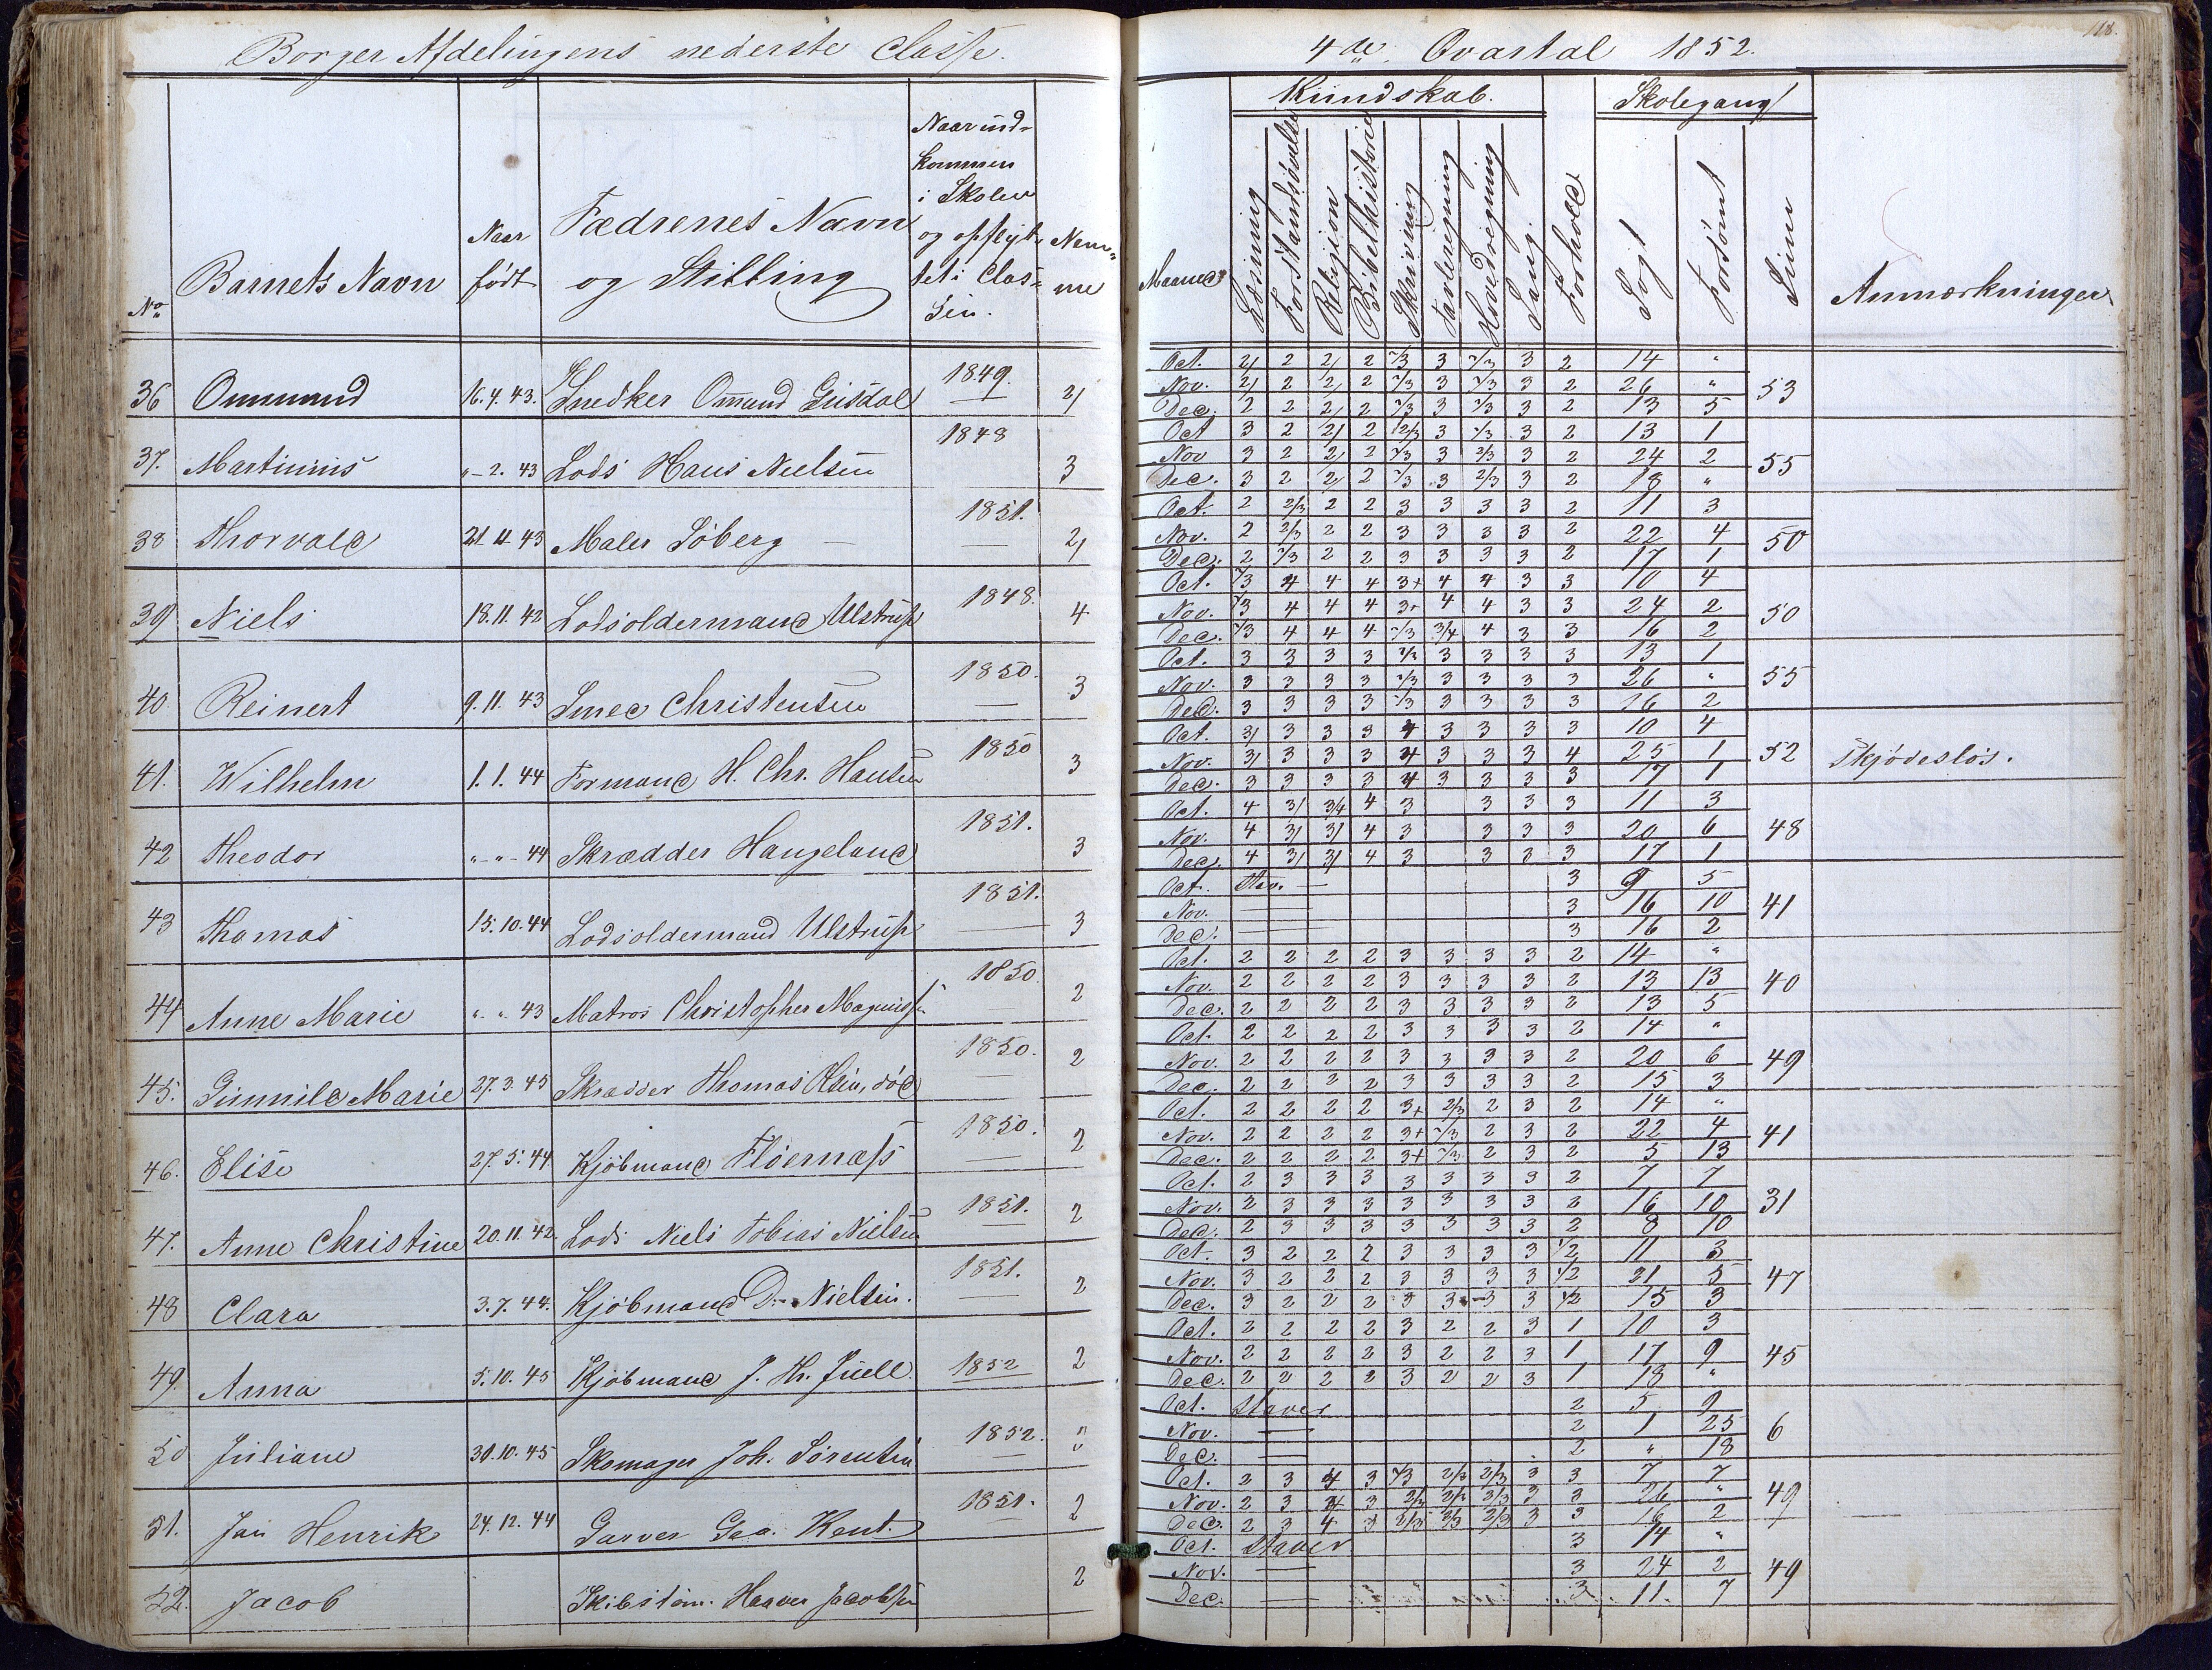 Borger Afdelingens nederste Classe.
No
Barnets Navn
Naar født
Fædrenes Navn og Stilling
Naar ind- kommen i Skolen og opflyt- tet i Clas- sen.
Nem- me
36 Ommund 16.4.43. Snedker Omund Giisdal 1849. 2/
37. Martinius "-2.43 Lods Hans Nielsen 1848 3
38 Thorvald 21.11.43 Maler Söberg 1851. 2/
39 Niels 18.11.42 Lodsoldermand Ulstrup 1848. 4
40 Reinert 9.11.43 Smed Christensen 1850. 3
41. Wilhelm 1.1.44 Formand H. Chr. Hansen 1850 3
42 Theodor "-"-44 Skrædder Haugeland 1851. 3
43 Thomas 15.10.44 Lodsoldermand Ulstrup 1851. 3
44 Anne Marie "-"-43 Matros Christopher Magnussen 1850. 2
45. Gunnild Marie 27.3.45 Skrædder Thomas Olsen, död 1850. 2
46. Elise 27.5.44. Kjöbmand Flöernæss 1850. 2
47. Anne Christine 20.11.42. Lods Niels Tobias Nielsen 1851. 2
48 Clara 3.7.44. Kjöbmand D. Nielsen. 1851. 2
49. Anna 5.10.45 Kjöbmand J. Th. Juell. 1852 2
50 Juliane 31.10.45 Skomager Joh. Sörensen 1852.
51. Jan Henrik 24.12.44 Garver Geo. Kent. 1851. 2
52. Jacob Skibstöm. Haaver Jacobsen 2
118.
4de Qvartal 1852.
Kundskab.
Skolegang
Maaned
Læsning
Forstandsövelse
Religion
Bibelhistorie
Skrivning
Tavleregning
Hovedregning
Sang
Forhold
Sögt
Forsömt
Sum
Anmærkninger
Oct. 2/ 2 2/ 2 2/3 3 2/3 3 2 14 "
Nov. 2/ 2 2/ 2 2/3 3 2/3 3 2 26 " 53
Dec. 2 2 2/ 2 2/3 3 2/3 3 2 13 5
Oct 3 2 2/ 2 2/3 3 2/3 3 2 13 1
Nov 3 2 2/ 2 2/3 3 2/3 3 2 24 2 55
Dec. 3 2 2/ 2 2/3 3 2/3 3 2 18 "
Oct. 2 2/3 2 2 3 3 3 3 2 11 3
Nov. 2 2/3 2 2 3 3 3 3 2 22 4 50
Dec. 2 2/3 2 2 3 3 3 3 2 17 1
Oct. 2/3 4 4 4 3+ 4 4 3 3 10 4
Nov. 2/3 4 4 4 3+ 4 4 3 3 24 2 50
Dec. 2/3 4 4 4 2/3 3/4 4 3 3 16 2
Oct. 3 3 3 3 2/3 3 3 3 3 13 1
Nov. 3 3 3 3 2/3 3 3 3 3 26 " 55
Dec. 3 3 3 3 2/3 3 3 3 3 16 2
Oct. 3/ 3 3 3 4 3 3 3 3 10 4
Nov. 3/ 3 3 3 4 3 3 3 4 25 1 52 Skjödeslös.
Dec. 3 3 3 3 4 3 3 3 3 17 1
Oct. 4 3/ 3/4 4 3 3 3 3 11 3
Nov. 4 3/ 3/ 4 3 3 3 3 20 6 48
Dec. 4 3/ 3/ 4 3 3 3 3 17 1
Oct. Stav. 3 9 5
Nov. 3 16 10 41
Dec. 3 16 2
Oct. 2 2 2 2 3 3 3 3 2 14 "
Nov. 2 2 2 2 3 3 3 3 2 13 13 40
Dec. 2 2 2 2 3 3 3 3 2 13 5
Oct. 2 2 2 2 3 3 3 3 2 14 "
Nov. 2 2 2 2 3 3 3 3 2 20 6 49
Dec. 2 2 2 2 3 3 3 3 2 15 3
Oct. 2 2 2 2 3+ 2/3 2 3 2 14 "
Nov. 2 2 2 2 3+ 2/3 2 3 2 22 4 41
Dec. 2 2 2 2 3+ 2/3 2 3 2 5 13
Oct. 2 3 3 3 3 3 3 3 2 7 7
Nov. 2 3 3 3 3 3 3 3 2 16 10 31
Dec. 2 3 3 3 3 3 3 3 2 8 10
Oct. 3 2 2 2 3 3 3 3 1/2 11 3
Nov. 3 2 2 2 3 3 3 3 1/2 21 5 47
Dec. 3 2 2 2 3 3 3 3 1/2 15 3
Oct. 2 2 2 2 3 2 2 3 1 10 3
Nov. 2 2 2 2 3 2 2 3 1 17 9 45
Dec. 2 2 2 2 3 2 2 3 1 18 "
Oct. Staver 2 5 9
Nov. 2 1 25 6
Dec. 2 " 18
Oct. 2 3 4 3 2/3 2/3 2/3 3 3 7 7
Nov. 2 3 4 3 2/3 2/3 2/3 3 3 26 " 49
Dec. 2 3 4 3 2/3 2/3 2/3 3 3 16 2
Oct. Staver 3 14 "
Nov. 3 24 2 49
Dec. 3 11. 7